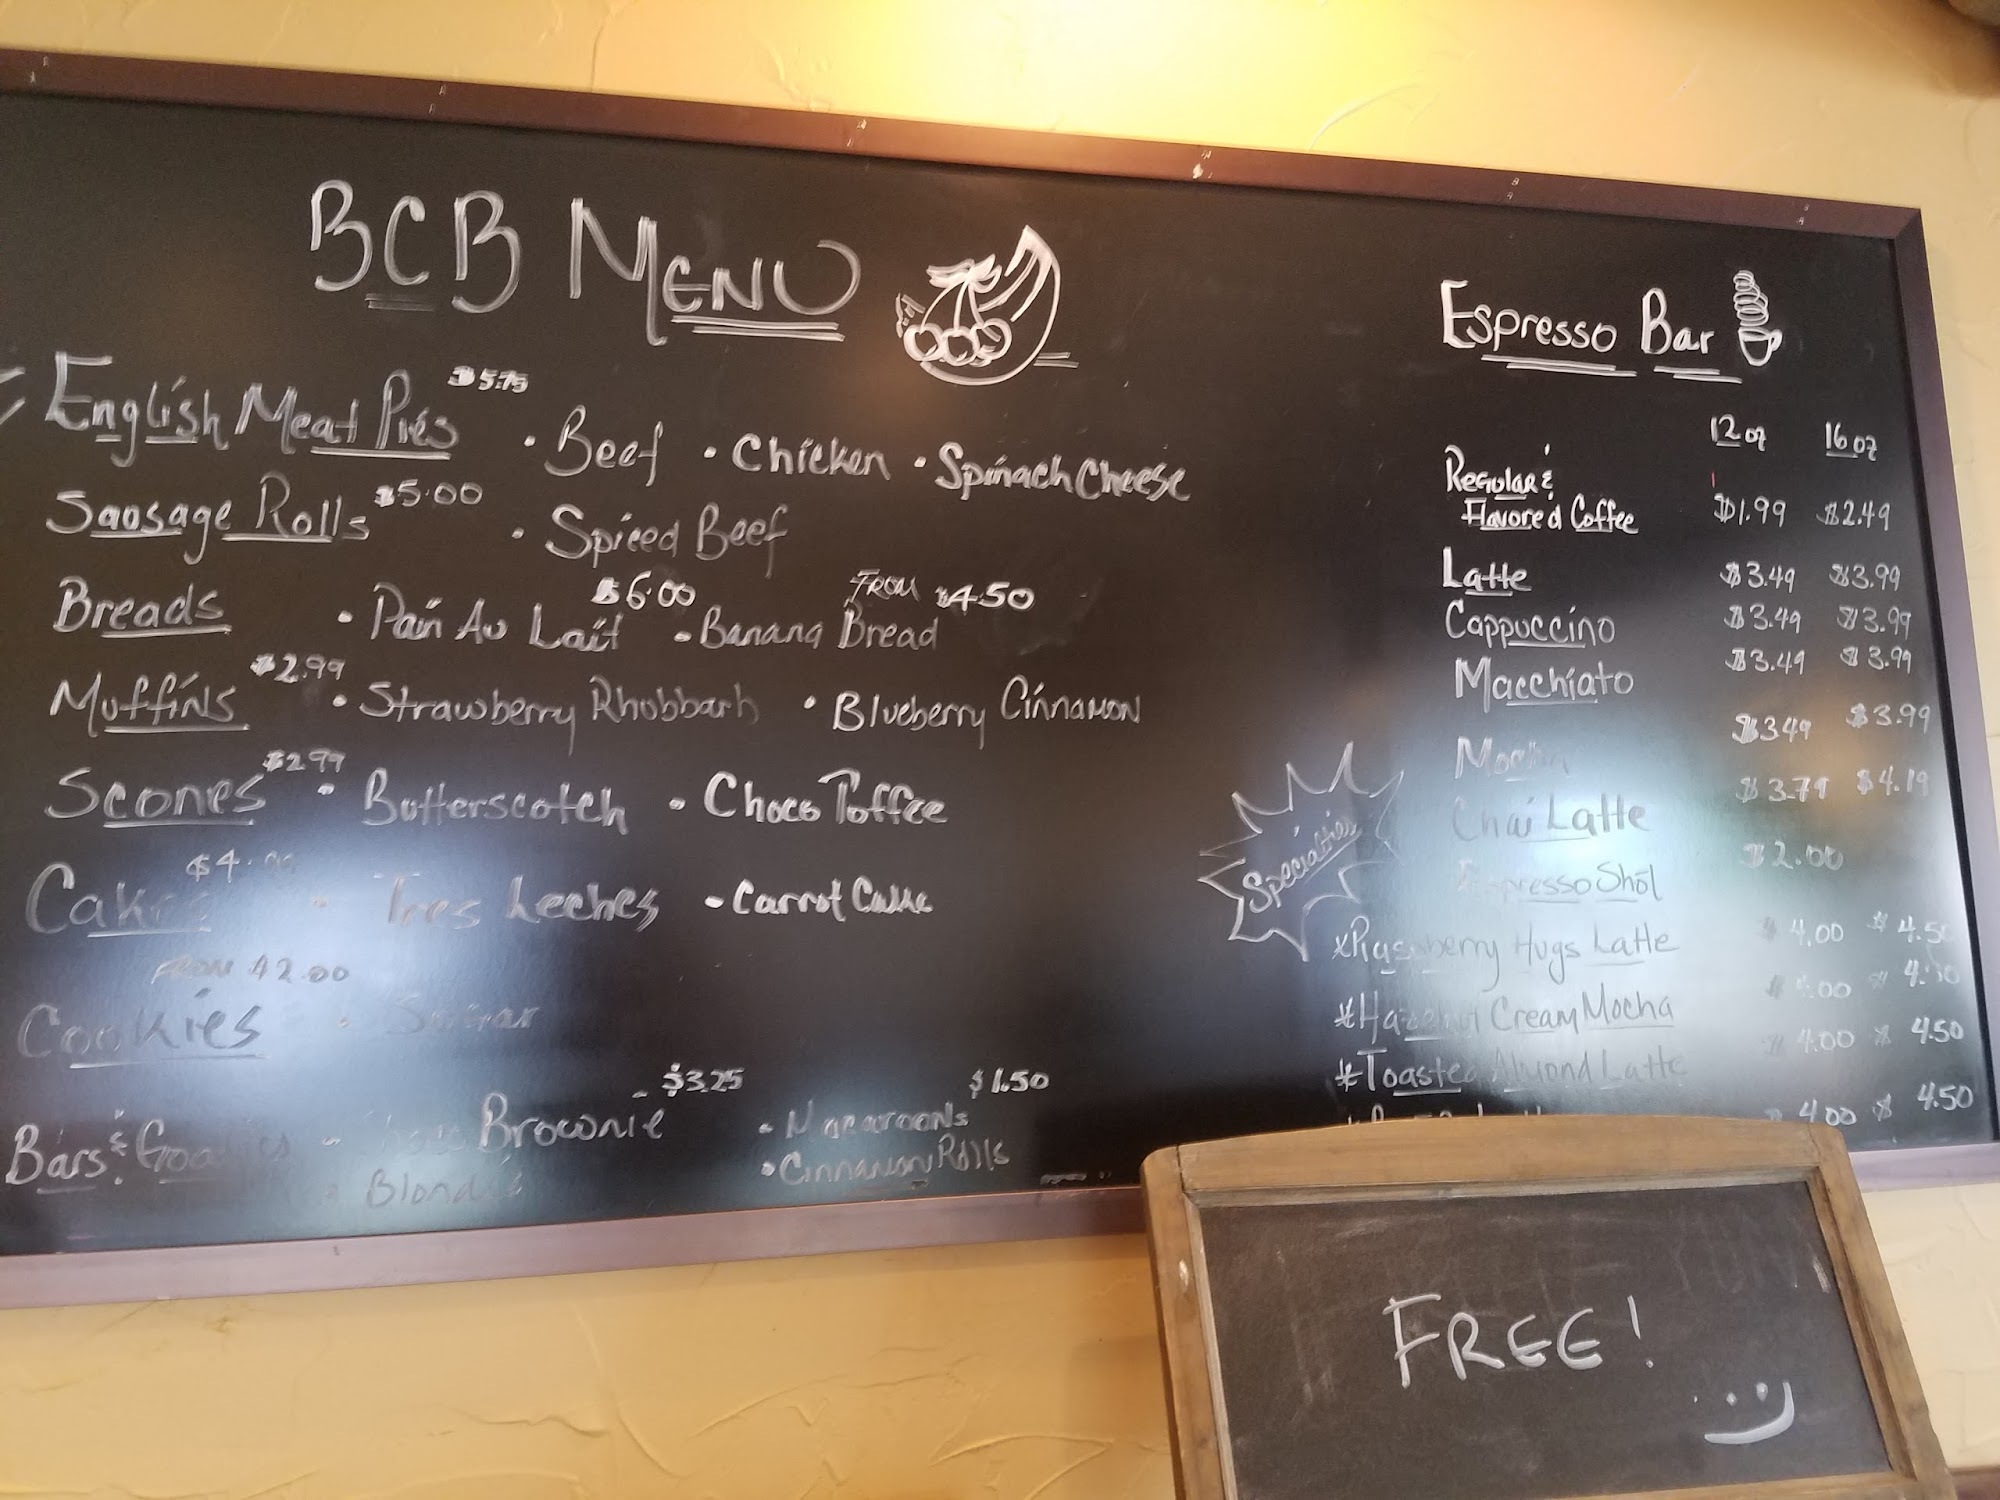 BCB MENU
English Meat Pies $5.75 • Beef • Chicken • Spinach Cheese
Sausage Rolls $5.00 • Spiced Beef
Breads • Pain Au Lait $6.00 • Banana Bread FROM $4.50
Muffins $2.99 • Strawberry Rhubbarb • Blueberry Cinnamon
Scones $2.99 • Butterscotch • Choco Toffee
Cakes • Tres Leches • Carrot Cake
Cookies FROM $2.00 • Sugar
Bars & Goodies Brownie $3.25 • Macaroons $1.50
• Blondie • Cinnamon Rolls
Espresso Bar
12 oz 16 oz
Regular &
Flavored Coffee $1.99 $2.49
Latte $3.49 $3.99
Cappuccino $3.49 $3.99
Macchiato $3.49 $3.99
Mocha $3.49 $3.99
Chai Latte $3.79 $4.19
Espresso Shot $2.00
Specialties
*Raspberry Hugs Latte $4.00 $4.50
*Hazelnut Cream Mocha
*Toasted Almond Latte $4.00 $4.50
$4.00 $4.50
FREE!